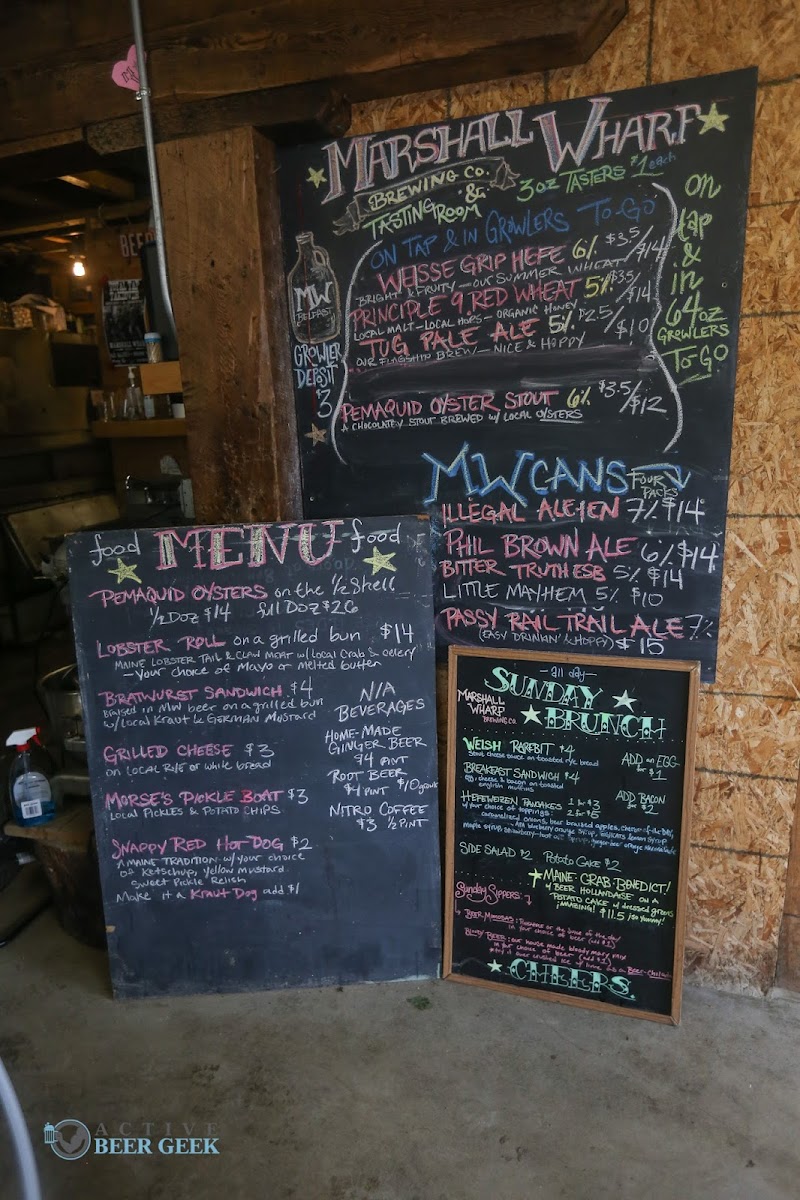 MARSHALL WHARF
BREWING CO.
&
TASTING ROOM
3oz TASTERS $1 each
ON TAP & IN GROWLERS TO-GO
WEISSE GRIP HEFE 6% $3.5/$14
BRIGHT & FRUITY - OUR SUMMER WHEAT
PRINCIPLE 9 RED WHEAT 5% $3.5/$14
LOCAL MALT - LOCAL HOPS - ORGANIC HONEY
TUG PALE ALE 5% $2.5/$10
OUR FLAGSHIP BREW - NICE & HOPPY
PEMAQUID OYSTER STOUT 6% $3.5/$12
A CHOCOLATEY STOUT BREWED W/ LOCAL OYSTERS
MW
BELFAST
GROWLER
DEPOSIT
$3
on
tap
&
in
64oz
GROWLERS
TO-GO
MW CANS FOUR PACKS
ILLEGAL ALE-IEN 7% $14
PHIL BROWN ALE 6% $14
BITTER TRUTH ESB 5% $14
LITTLE MAYHEM 5% $10
PASSY RAIL TRAIL ALE 7%
(EASY DRINKIN' & HOPPY) $15
food MENU food
PEMAQUID OYSTERS on the 1/2 Shell
1/2 Doz $14 full Doz $26
LOBSTER ROLL on a grilled bun $14
MAINE LOBSTER TAIL & CLAW MEAT w/ local Crab & celery
- your choice of Mayo or melted butter
BRATWURST SANDWICH $4
Braised in MW beer on a grilled bun
w/ local Kraut & GERMAN MUSTARD
GRILLED CHEESE $3
on LOCAL RYE or white bread
MORSE'S PICKLE BOAT $3
LOCAL PICKLES & POTATO CHIPS
SNAPPY RED HOT DOG $2
A MAINE TRADITION w/ your choice
of Ketchup, Yellow Mustard
Sweet Pickle Relish
Make it a Kraut-Dog add $1
N/A
BEVERAGES
HOME-MADE
GINGER BEER
$4 PINT
ROOT BEER
$4 PINT $10 growler
NITRO COFFEE
$3 1/2 PINT
- all day -
SUNDAY
BRUNCH
MARSHALL
WHARF
BREWING CO.
WELSH RAREBIT $4
Stout cheese sauce on toasted rye bread
BREAKFAST SANDWICH $4
egg, cheese & bacon on toasted
english muffins
HEFEWEIZEN PANCAKES 1 for $3
your choice of toppings: 2 for $5
caramelized onions, beer braised apples,
ADD an EGG
for $1
ADD BACON
for $2
SIDE SALAD $2 POTATO CAKE $2
MAINE-CRAB-BENEDICT!
w/ BEER HOLLANDAISE ON A
POTATO CAKE w/ dressed greens
¡AMAZING! $11.5 /so yummy!
Sunday Sippers: 7
BEER MIMOSAS:
in your choice of beer (add $1)
BLOODY BEER: our house made bloody mary mix
in your choice of beer (add $1)
CHEERS
ACTIVE
BEER GEEK